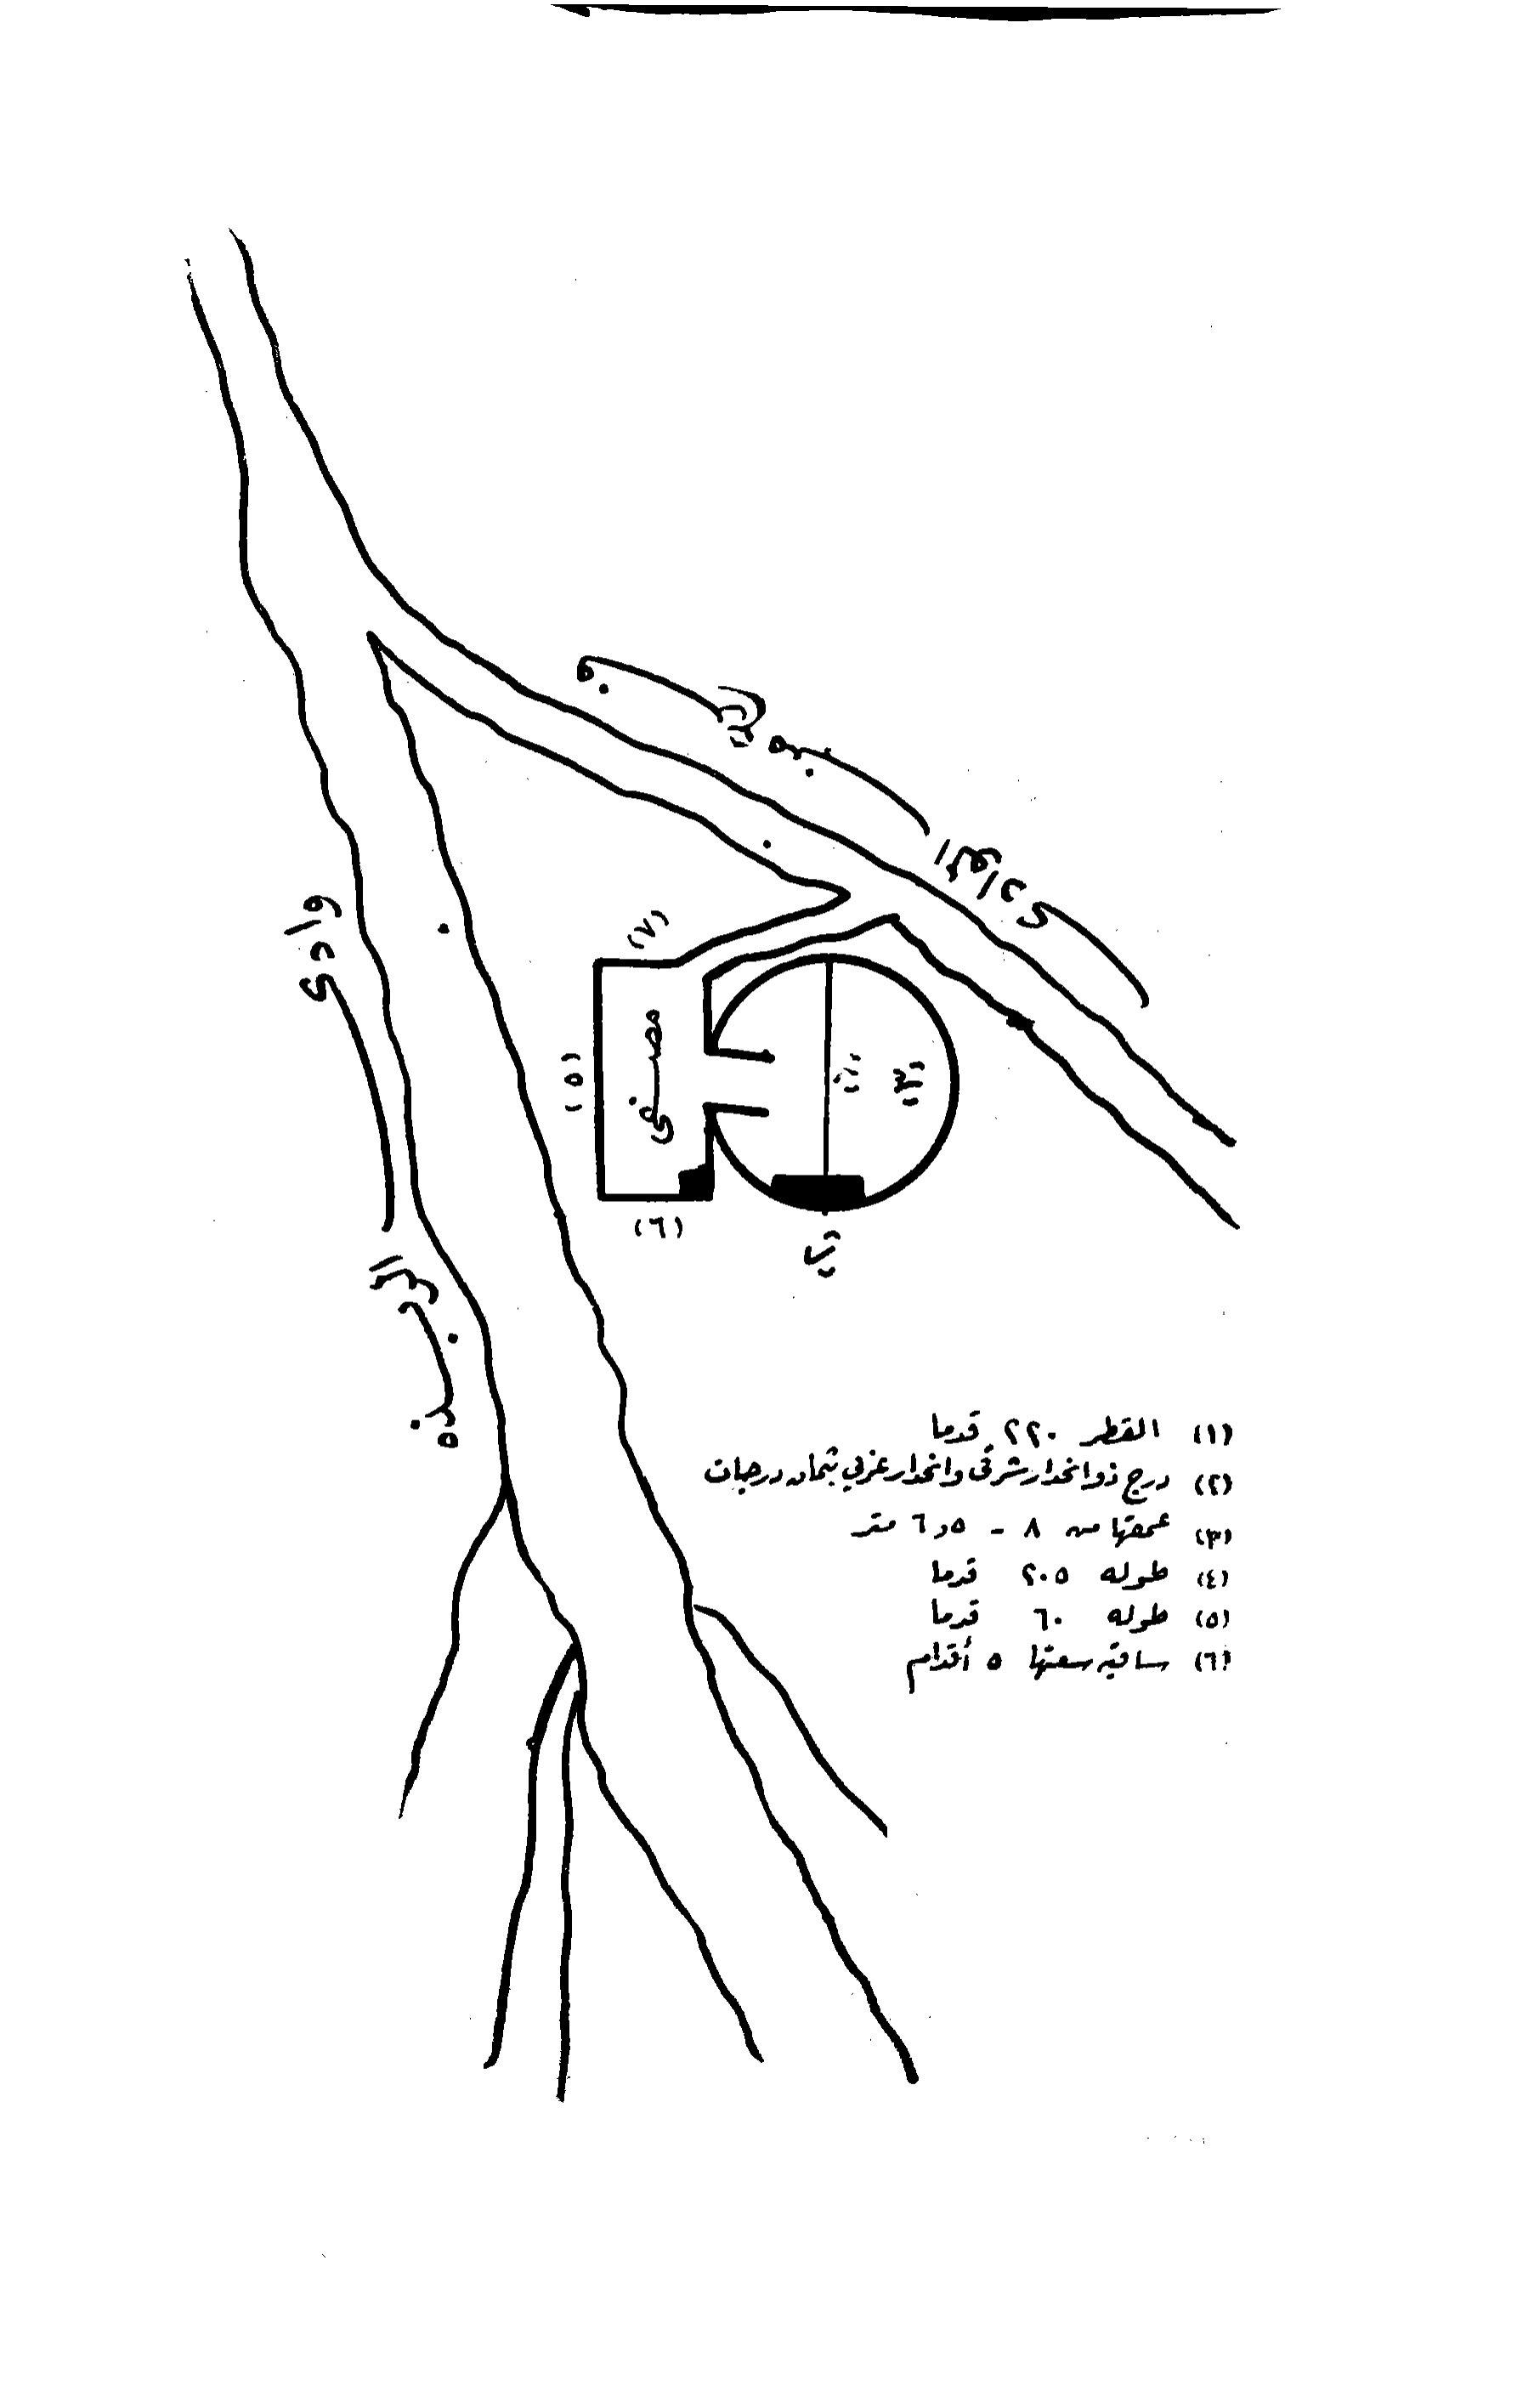 وادي الربذة
(٧)
مصفى
(٥)
(١)
(٣)
(٦)
(٢)
(١) القطر ٢٢٠ قدما
(٢) درج ذو انحدار شرقي وانحدار غربي بثمان درجات
(٣) عمقها من ٨ - ٦٫٥ متر
(٤) طوله ٢٠٥ قدما
(٥) طوله ٦٠ قدما
(٦) ساقية سعتها ٥ أقدام